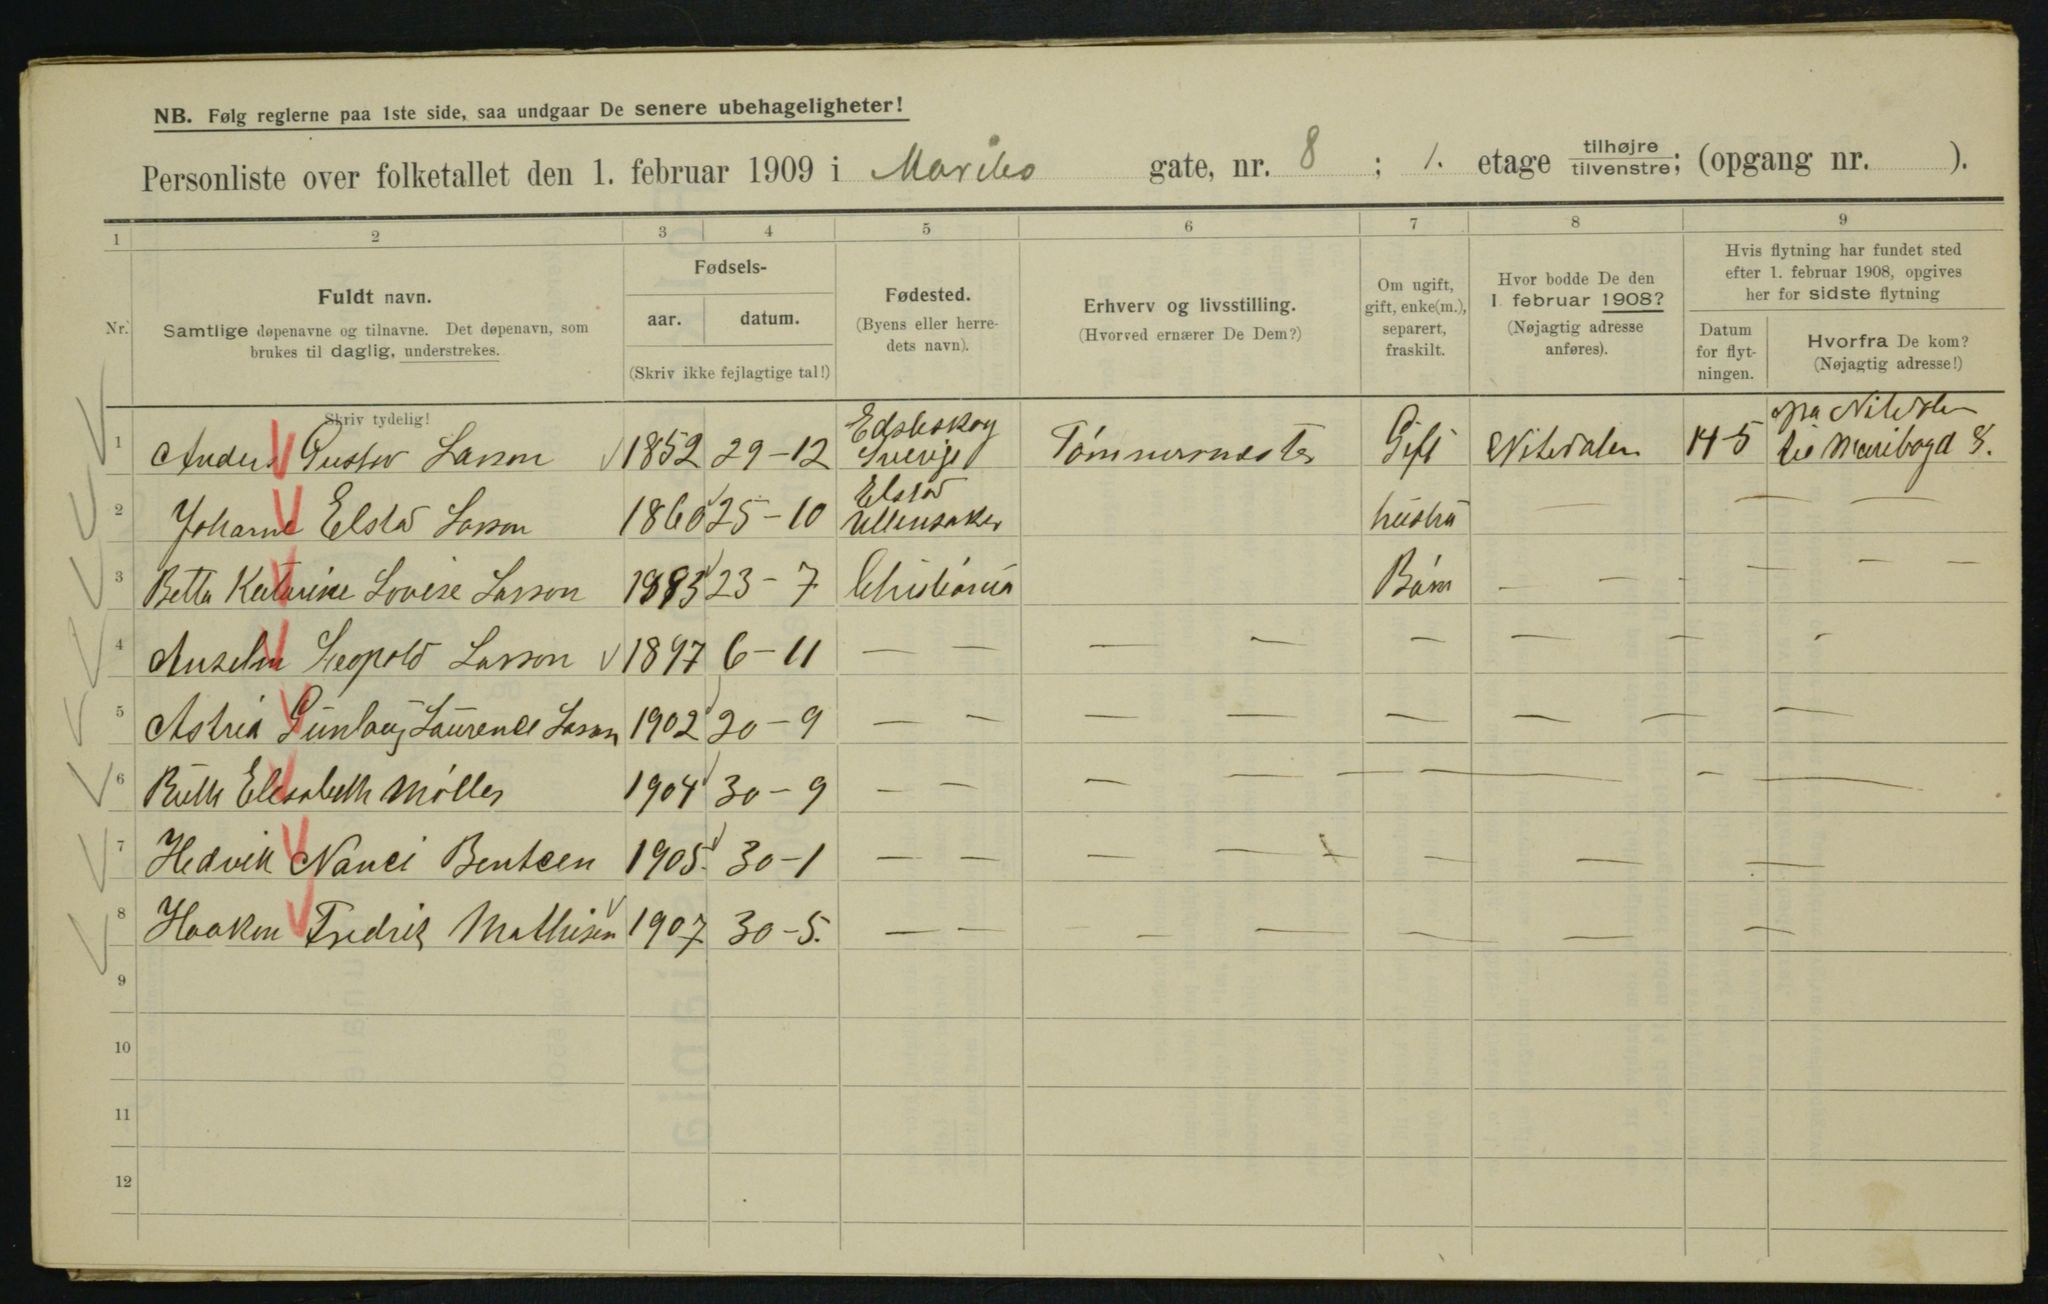 NB. Følg reglerne paa 1ste side, saa undgaar De senere ubehageligheter!
Personliste over folketallet den 1. februar 1909 i Maribo gate, nr. 8 ; 1. etage tilhøjre tilvenstre; (opgang nr. ).
1 2 3 4 5 6 7 8 9
Nr.
Fuldt navn.
Samtlige døpenavne og tilnavne. Det døpenavn, som
brukes til daglig, understrekes.
Skriv tydelig!
Fødsels-
aar. datum.
(Skriv ikke fejlagtige tal!)
Fødested.
(Byens eller herre-
dets navn).
Erhverv og livsstilling.
(Hvorved ernærer De Dem?)
Om ugift,
gift, enke(m.),
separert,
fraskilt.
Hvor bodde De den
1. februar 1908?
(Nøjagtig adresse
anføres).
Hvis flytning har fundet sted
efter 1. februar 1908, opgives
her for sidste flytning
Datum
for flyt-
ningen.
Hvorfra De kom?
(Nøjagtig adresse!)
1 Anders Gustav Larson 1852 29-12 Edsleskog Sverige Tømmermester Gift Nitedalen 14-5 fra Nitedalen til Maribogd 8.
2 Johanne Elstad Larson 1860 25-10 Elstad Ullensaker hustru — — —
3 Betta Katarine Lovise Larson 1883 23-7 Christiania Barn — — - — — —
4 Anselm Leopold Larson 1897 6-11 — — — — — — — -
5 Astrid Gunlaug Laurence Larson 1902 20-9 — — — — — — — —
6 Ruth Elisabeth Møller 1904 30-9 — — — — — — — —
7 Hedvik Nanci Bentcen 1905. 30-1 — — — — — — —
8 Haakon Fredrik Mathisen 1907 30-5. — — — — — — —
9
10
11
12